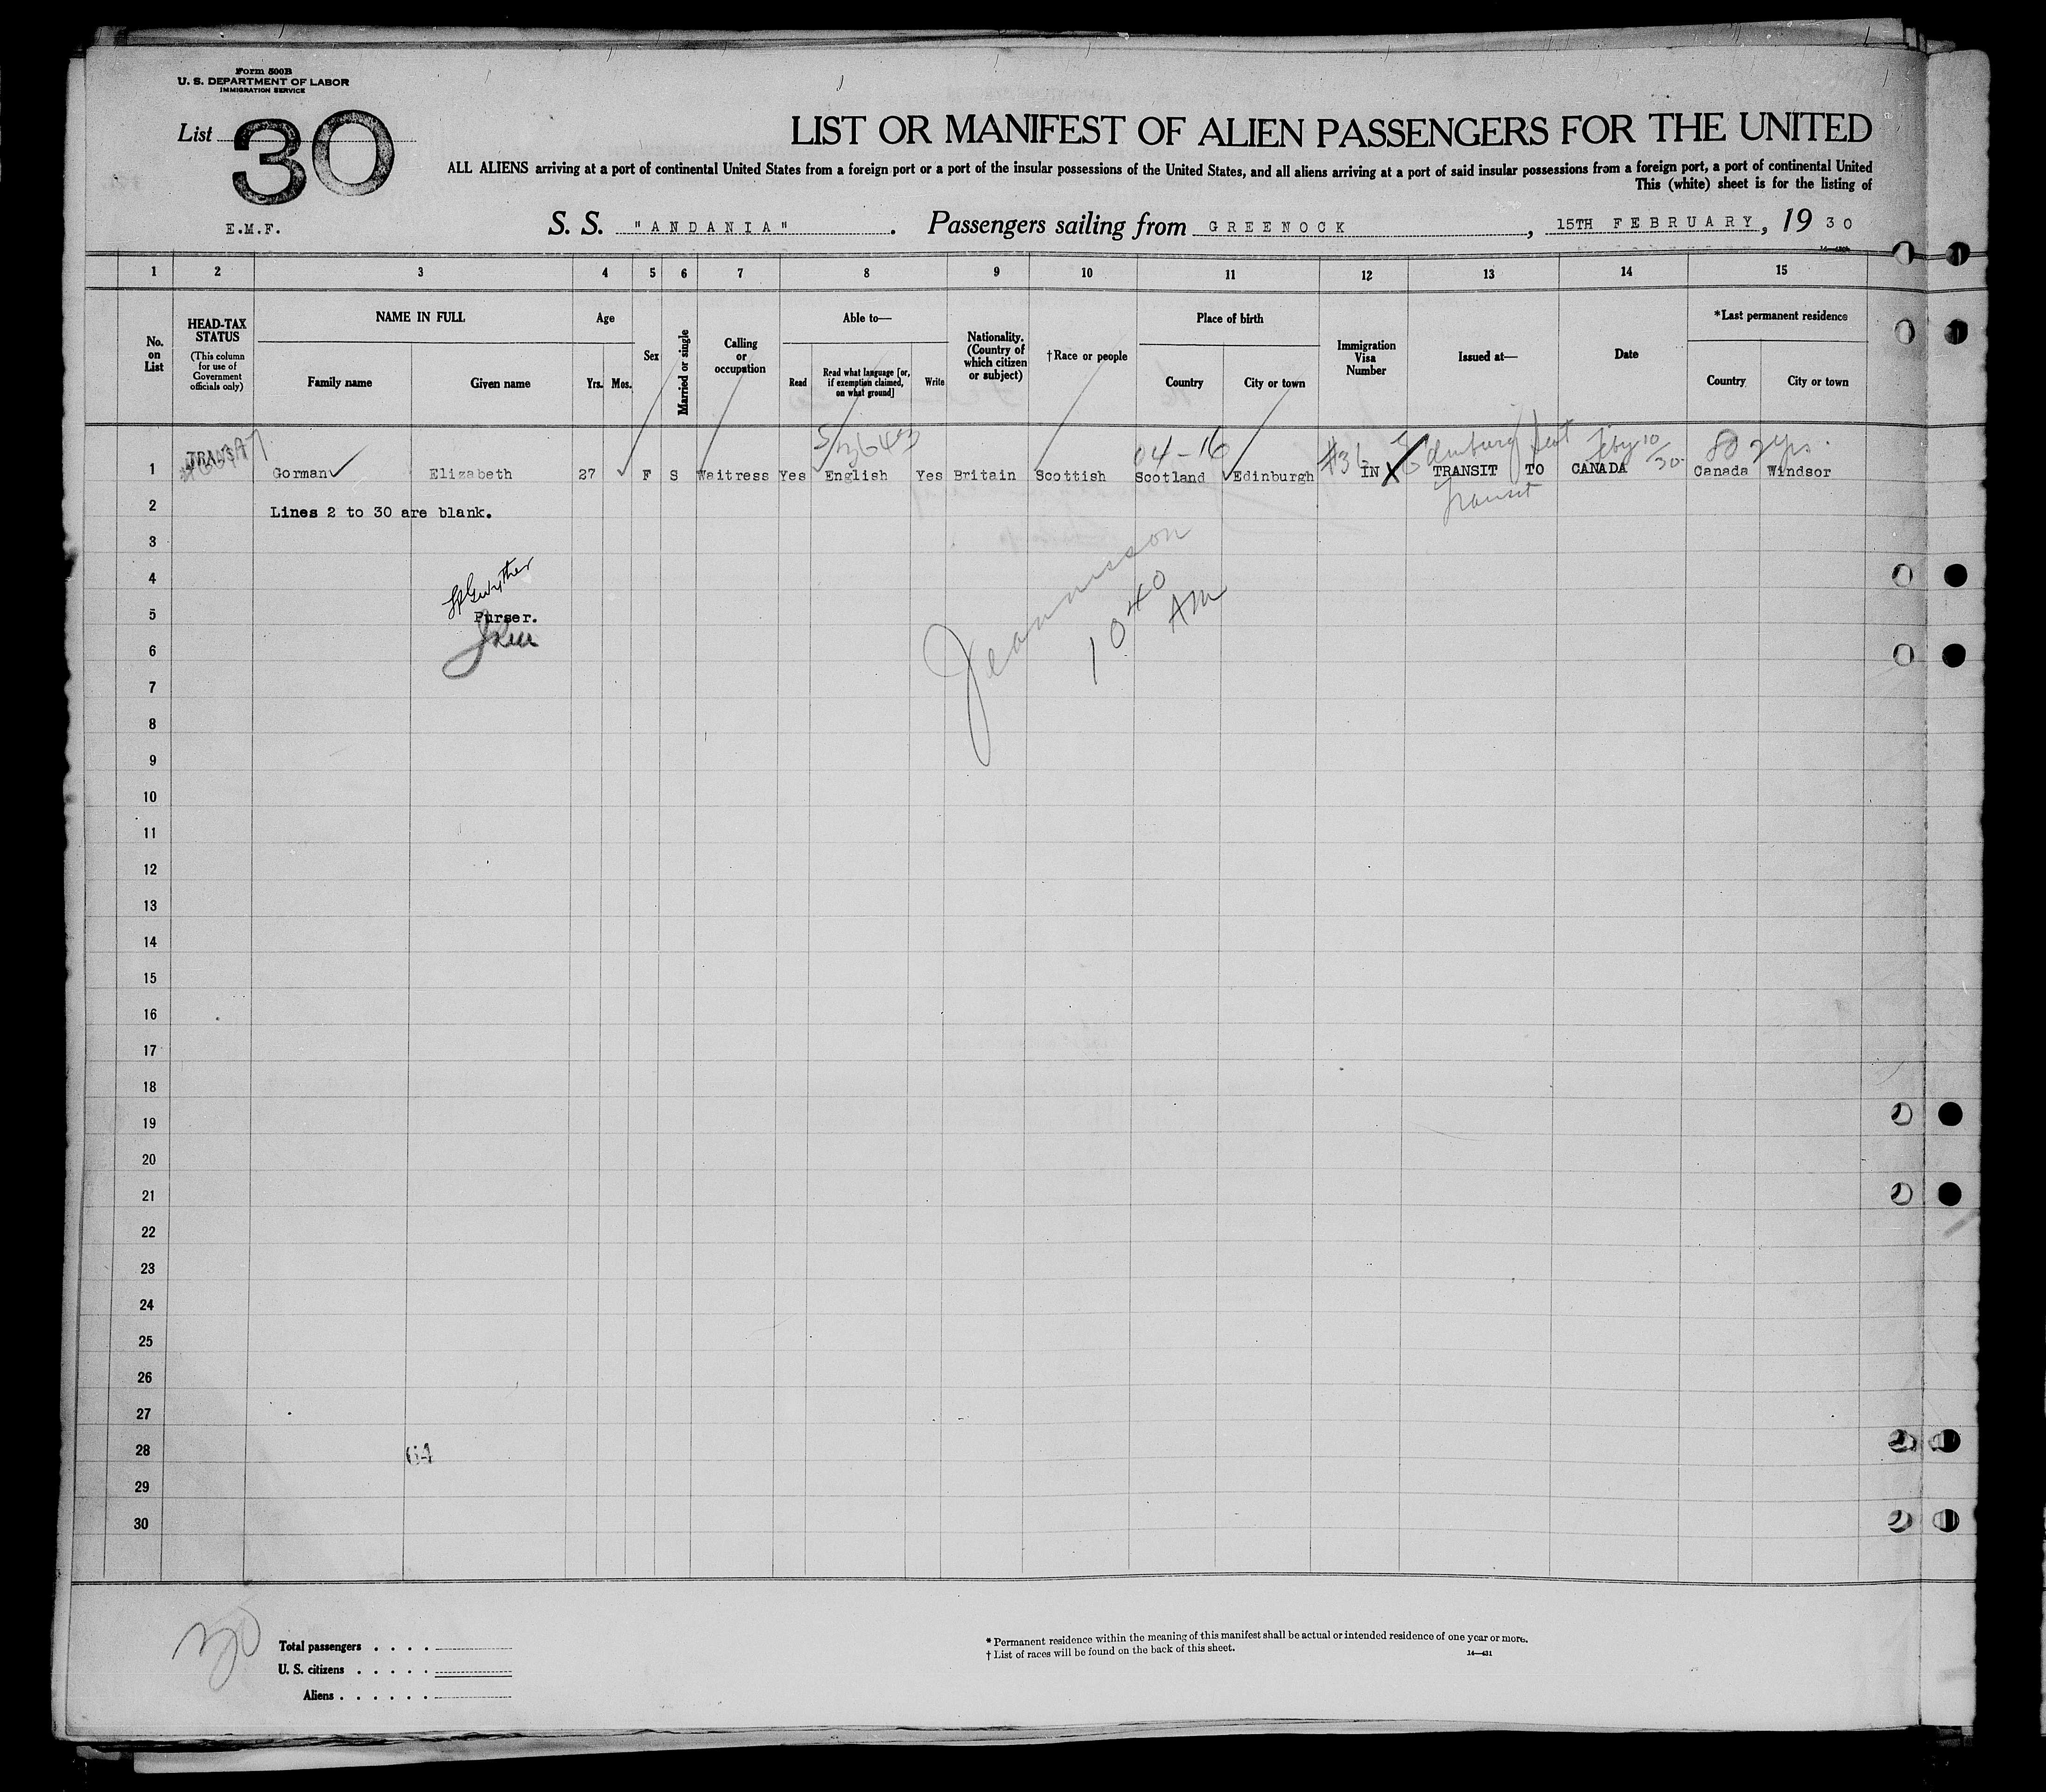 Form 500B
U. S. DEPARTMENT OF LABOR
IMMIGRATION SERVICE
List 30
LIST OR MANIFEST OF ALIEN PASSENGERS FOR THE UNITED
ALL ALIENS arriving at a port of continental United States from a foreign port or a port of the insular possessions of the United States, and all aliens arriving at a port of said insular possessions from a foreign port, a port of continental United
This (white) sheet is for the listing of
E.M.F.
S. S. "ANDANIA". Passengers sailing from GREENOCK, 15TH FEBRUARY, 1930
1 2 3 4 5 6 7 8 9 10 11 12 13 14 15
No. on List
HEAD-TAX STATUS
(This column for use of Government officials only)
NAME IN FULL
Family name
Given name
Age
Yrs. Mos.
Sex
Married or single
Calling or occupation
Able to—
Read
Read what language [or, if exemption claimed, on what ground]
Write
Nationality. (Country of which citizen or subject)
†Race or people
Place of birth
Country
City or town
Immigration Visa Number
Issued at—
Date
*Last permanent residence
Country
City or town
TRANSIT
04-16
Feby 10/30
2 yrs.
1 Gorman Elizabeth 27 F S Waitress Yes English Yes Britain Scottish Scotland Edinburgh IN TRANSIT TO CANADA Canada Windsor
Transit
2 Lines 2 to 30 are blank.
3
4
5 Purser.
10 40 AM
6
7
8
9
10
11
12
13
14
15
16
17
18
19
20
21
22
23
24
25
26
27
28 64
29
30
30
Total passengers . . . .
U. S. citizens . . . . .
Aliens . . . . . .
* Permanent residence within the meaning of this manifest shall be actual or intended residence of one year or more.
† List of races will be found on the back of this sheet.
14—431